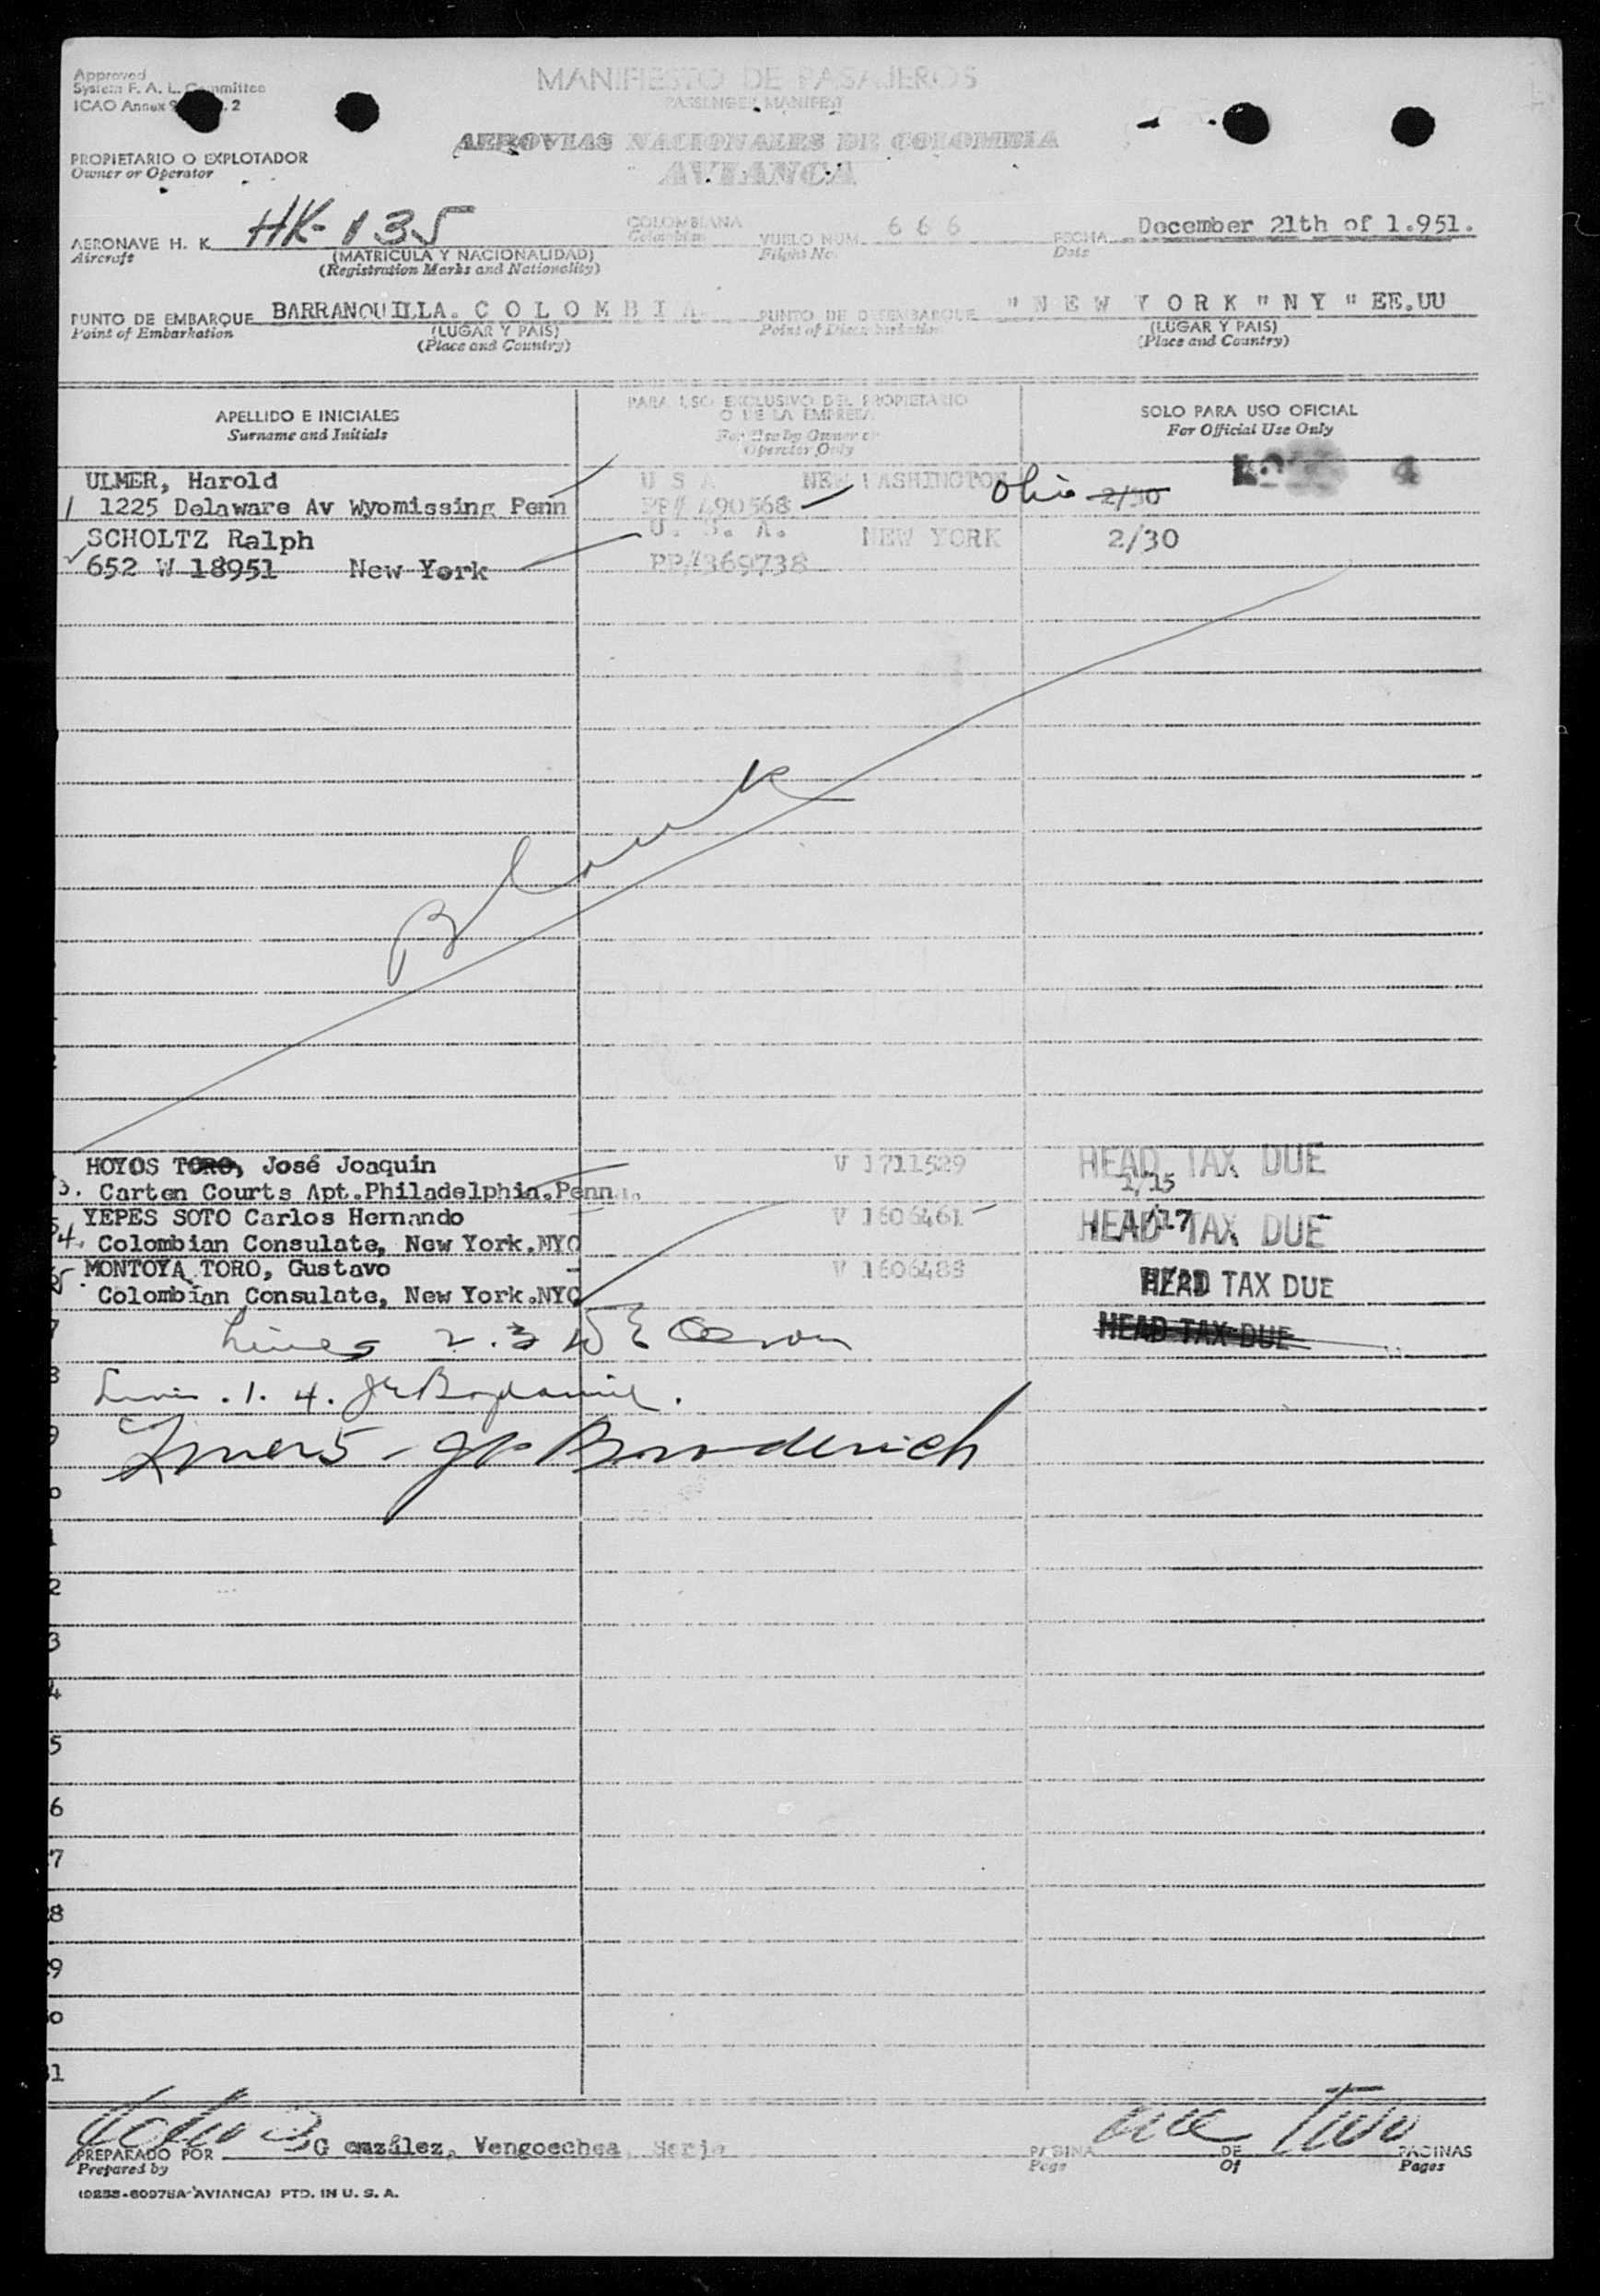 Approved
System F. A. L. Committee
ICAO Annex 9 2
MANIFIESTO DE PASAJEROS
PASSENGER MANIFEST
AEROVIAS NACIONALES DE COLOMBIA
AVIANCA
PROPIETARIO O EXPLOTADOR
Owner or Operator
AERONAVE H. K. HK-135 COLOMBIANA VUELO NUM. 666 FECHA December 21th of 1.951.
Aircraft (MATRICULA Y NACIONALIDAD) Colombian Flight No. Date
(Registration Marks and Nationality)
PUNTO DE EMBARQUE BARRANQUILLA. C O L O M B I A PUNTO DE DESEMBARQUE " N E W Y O R K " N Y " EE.UU
Point of Embarkation (LUGAR Y PAIS) Point of Disembarkation (LUGAR Y PAIS)
(Place and Country) (Place and Country)
APELLIDO E INICIALES
Surname and Initials
PARA USO EXCLUSIVO DEL PROPIETARIO
O DE LA EMPRESA
For Use by Owner or
Operator Only
SOLO PARA USO OFICIAL
For Official Use Only
ULMER, Harold U S A NEW WASHINGTON Ohio 2/30 4
1 1225 Delaware Av Wyomissing Penn PP# 490568
SCHOLTZ Ralph U. S. A. NEW YORK 2/30
652 W 18951 New York PP#369738
Blank
HOYOS TORO, José Joaquin V 1711529 HEAD TAX DUE
3. Carten Courts Apt.Philadelphia.Penn. 1/15
YEPES SOTO Carlos Hernando V 1606461 HEAD TAX DUE
4. Colombian Consulate, New York.NYC 1/17
MONTOYA TORO, Gustavo V 1606488 HEAD TAX DUE
5 Colombian Consulate, New York.NYC
HEAD TAX DUE
Lines 2.3
.1. 4.
5
7
8
9
0
1
2
3
4
5
6
7
8
9
0
31
PREPARADO POR González, Vengoechea, PAGINA one DE Two PAGINAS
Prepared by Page Of Pages
(9288-60975A-AVIANCA) PTD. IN U. S. A.